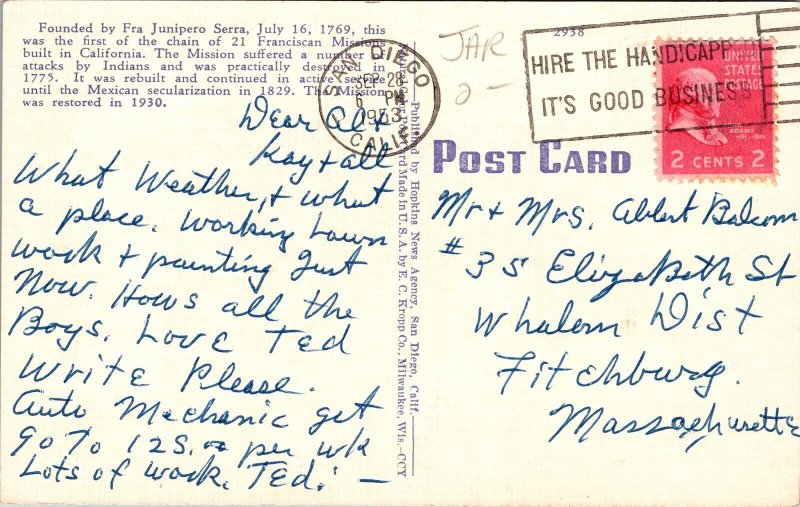 Founded by Fra Junipero Serra, July 16, 1769, this
was the first of the chain of 21 Franciscan Missions
built in California. The Mission suffered a number of
attacks by Indians and was practically destroyed in
1775. It was rebuilt and continued in active service
until the Mexican secularization in 1829. The Mission
was restored in 1930.
Dear Al +
Kay + all
What Weather, + what
a place. Working Lawn
work + painting Just
Now. Hows all the
Boys. Love Ted
Write Please.
Auto Mechanic get
90 To 125.00 per wk
Lots of work. Ted. —
Published by Hopkins News Agency, San Diego, Calif.
Card Made in U. S. A. by E. C. Kropp Co., Milwaukee, Wis.—CCY
SAN DIEGO
SEP 28
6 PM
1953
CALIF.
JAR
2-
2938
HIRE THE HANDICAPPE
IT'S GOOD BUSINESS
UNITED
STATES
POSTAGE
ADAMS
2 CENTS 2
POST CARD
Mr + Mrs. Albert Balcom
# 35 Elizabeth St
Whalom Dist
Fitchburg.
Massachusetts